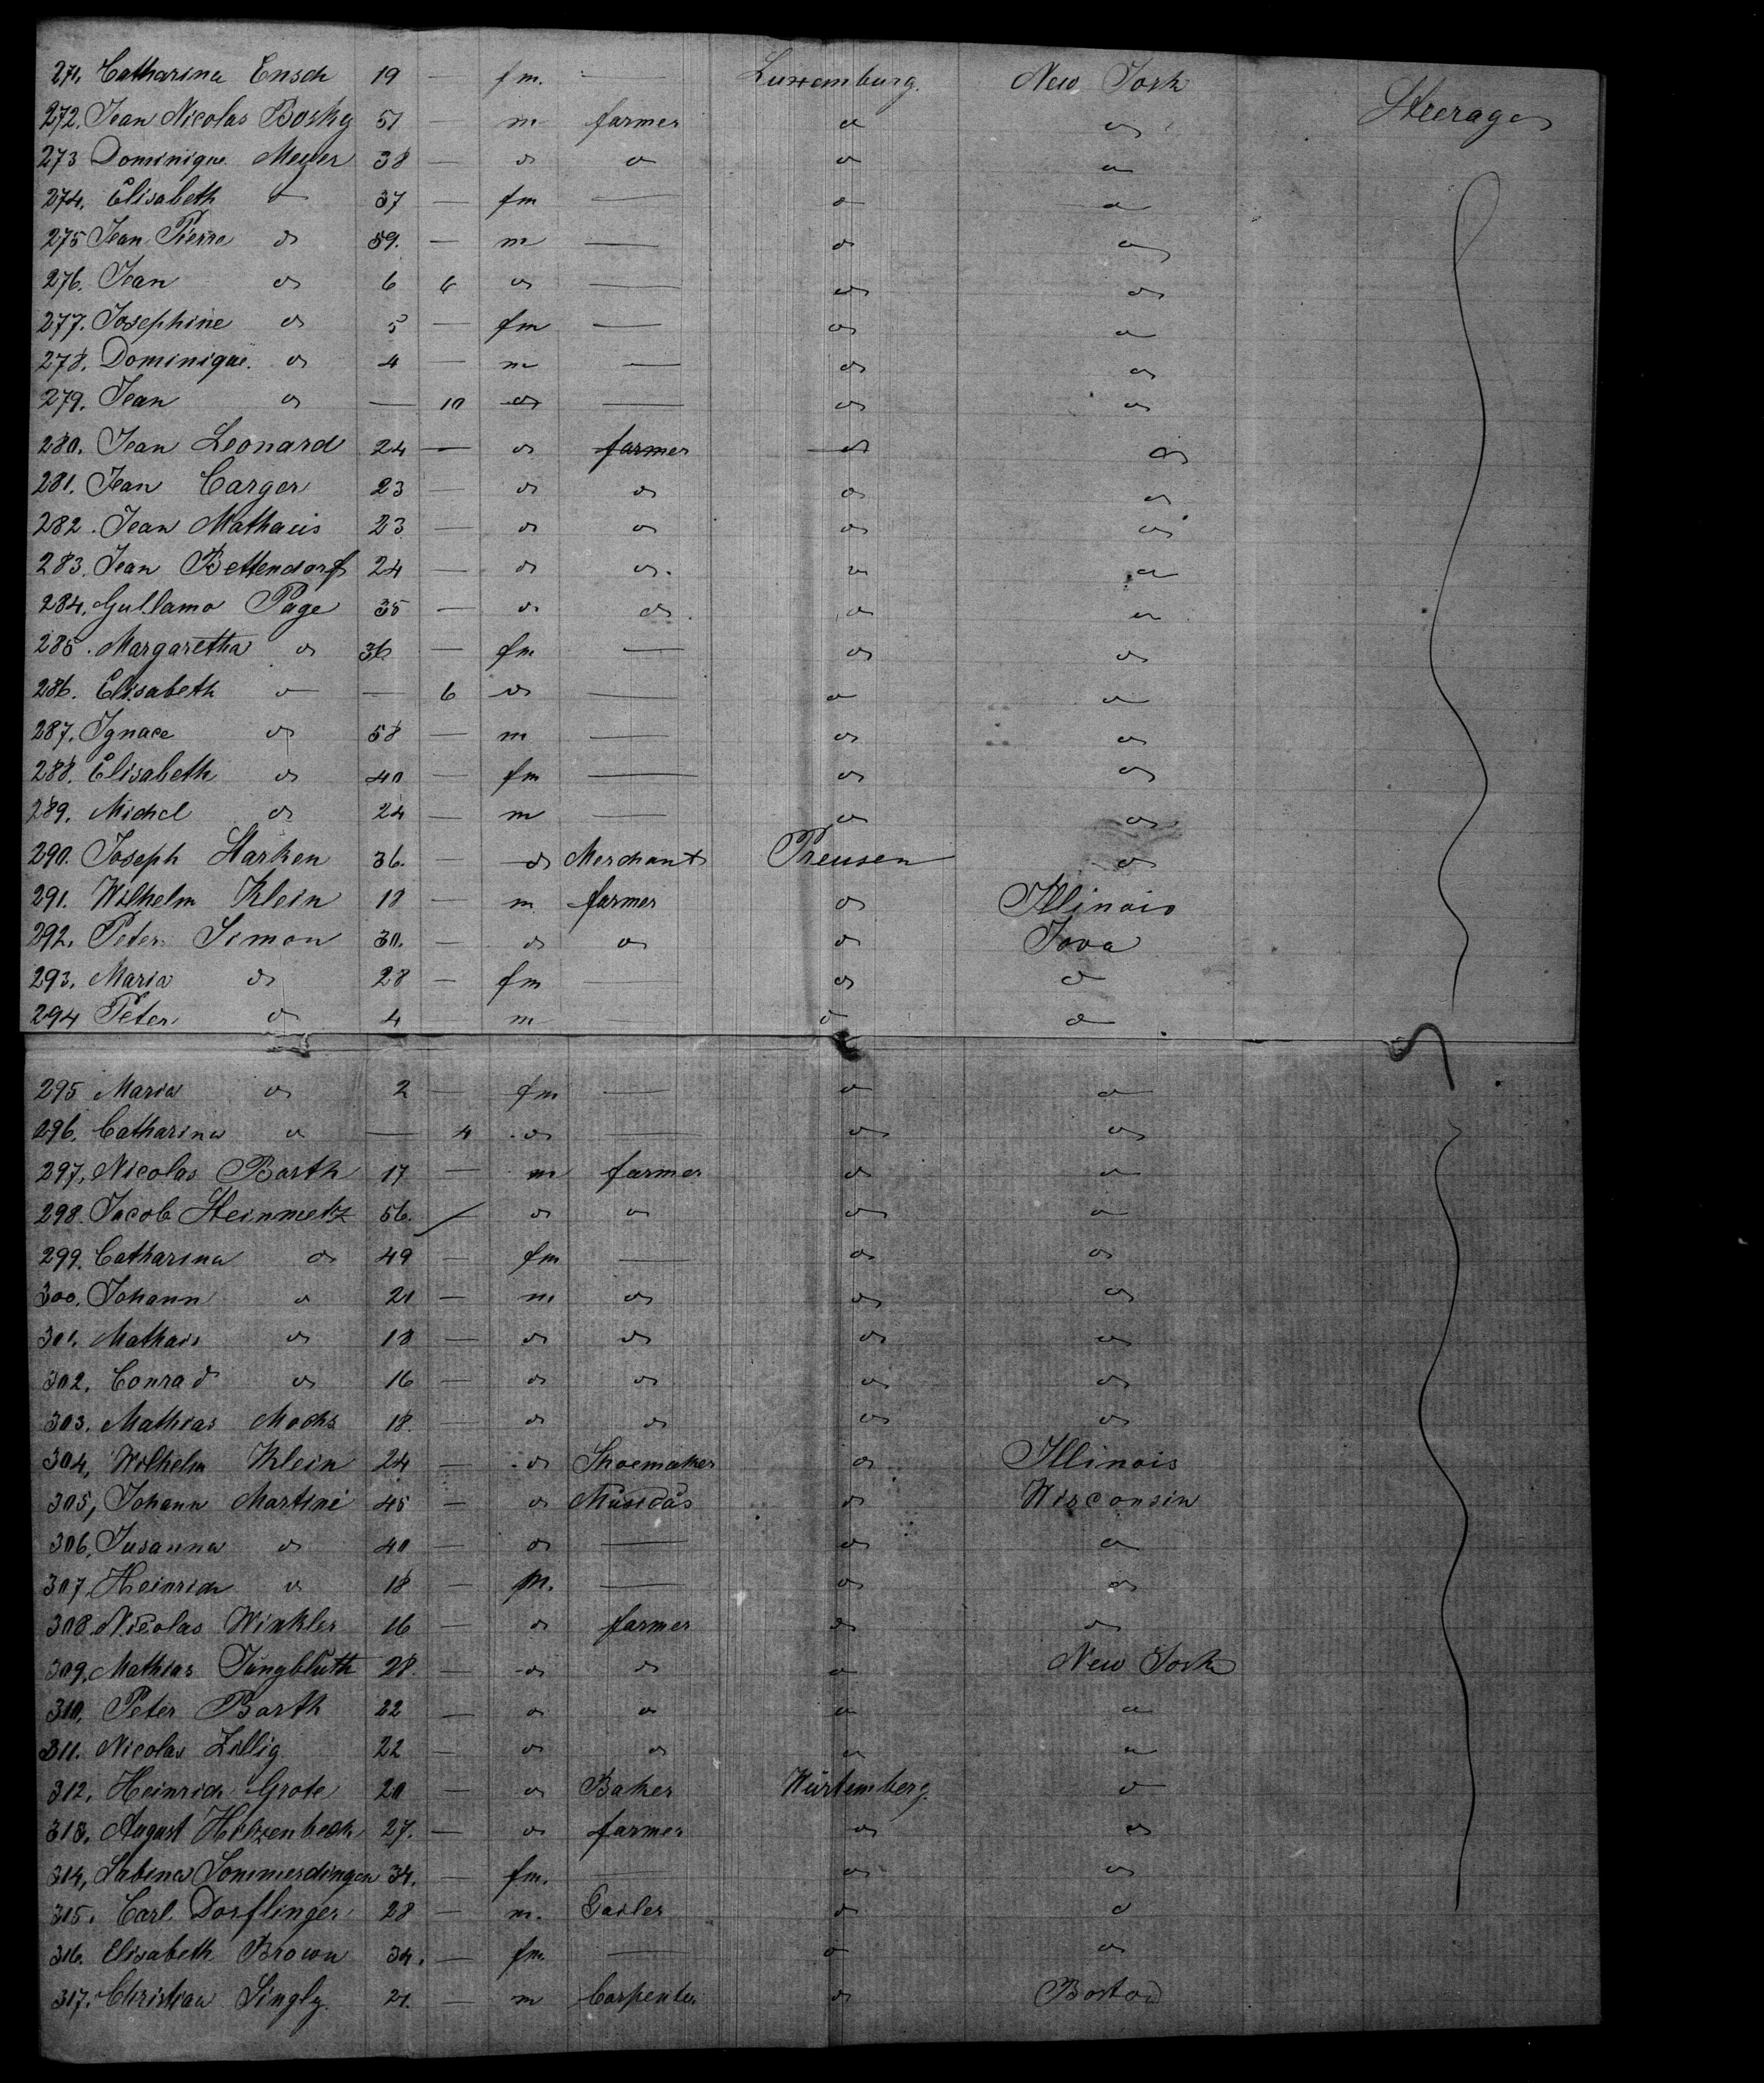 271. Catharina Ensch 19 — fm. — Luxemburg. New York Steerage
272. Jean Nicolas Bosky 51 — m farmer do do
273 Dominique Meyer 38 — do do do do
274. Elisabeth do 37 — fm — do do
275 Jean Pierre do 59. — m — do do
276. Jean do 6 6 do — do do
277. Josephine do 5 — fm — do do
278. Dominique. do 4 — m — do do
279. Jean do — 10 do — do do
280. Jean Leonard 24 — do farmer do do
281. Jean Carger 23 — do do do do
282. Jean Mathaus 23 — do do do do
283. Jean Bettendorf 24 — do do. do do
284. Gullamo Page 35 — do do do do
285. Margaretha do 36 — fm — do do
286. Elisabeth do — 6 do — do do
287. Ignace do 58 — m — do do
288. Elisabeth do 40 — fm — do do
289. Michel do 24 — m — do do
290. Joseph Starken 36. — do Merchant Preusen do
291. Wilhelm Klein 18 — m farmer do Illinois
292. Peter Simon 30. — do do do Iova
293. Maria do 28 — fm — do do
294 Peter do 4 — m — do do
295 Maria do 2 — fm — do do
296. Catharina do — 4 do — do do
297. Nicolas Barth 17 — m farmer do do
298. Jacob Steinmetz 56. — do do do do
299. Catharina do 49 — fm — do do
300. Johann do 20 — m do do do
301. Mathais do 18 — do do do do
302. Conrad do 16 — do do do do
303. Mathias Mocks 18. — do do do do
304, Wilhelm Klein 24 — do Shoemaker do Illinois
305, Johann Martini 45 — do do Wisconsin
306. Susanna do 40 — do — do do
307. Heinrich do 18 — m. — do do
308. Nicolas Winkler 16 — do farmer do do
309. Mathias Jungbluth 28 — do do do New York
310. Peter Barth 22 — do do do do
311. Nicolas Zillig 22 — do do do do
312. Heinrich Grote 20 — do Baker Würtemberg. do
313. August Hitzenbeck 27. — do farmer do do
314, Sabina Sommerdingen 34. — fm. — do do
315. Carl Dorflinger 28 — m. do do
316. Elisabeth Brown 34. — fm. — do do
317. Christian Singly. 21. — m Carpenter do Boston